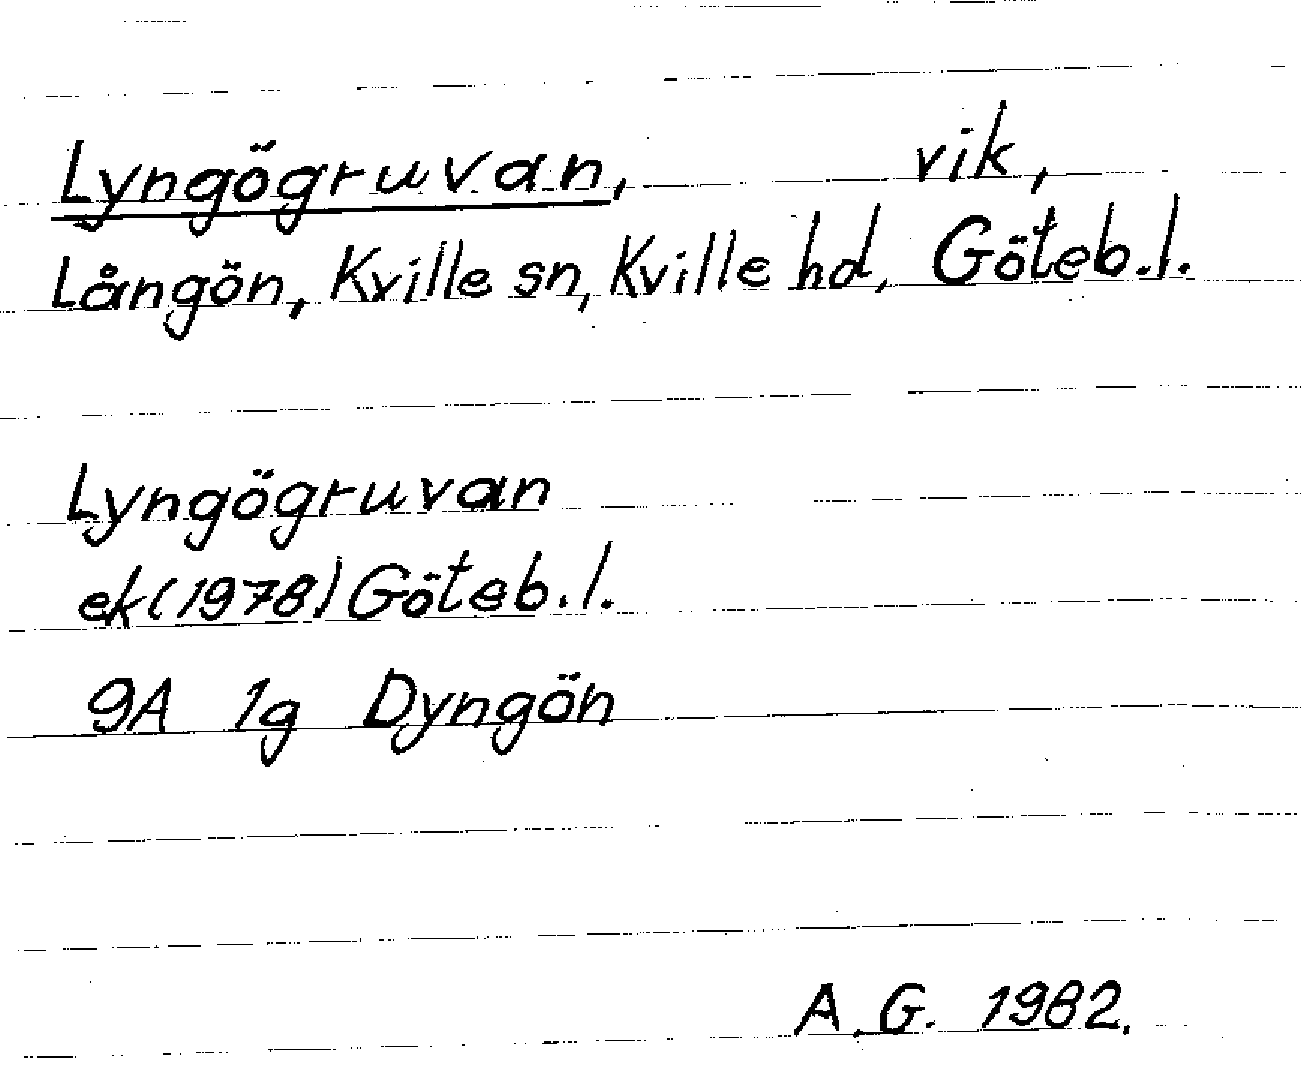 Lyngögruvan, vik,
Långön, Kville sn, Kville hd, Göteb.l.
Lyngögruvan
ek(1978) Göteb.l.
9A 1g Dyngön
A.G. 1982.